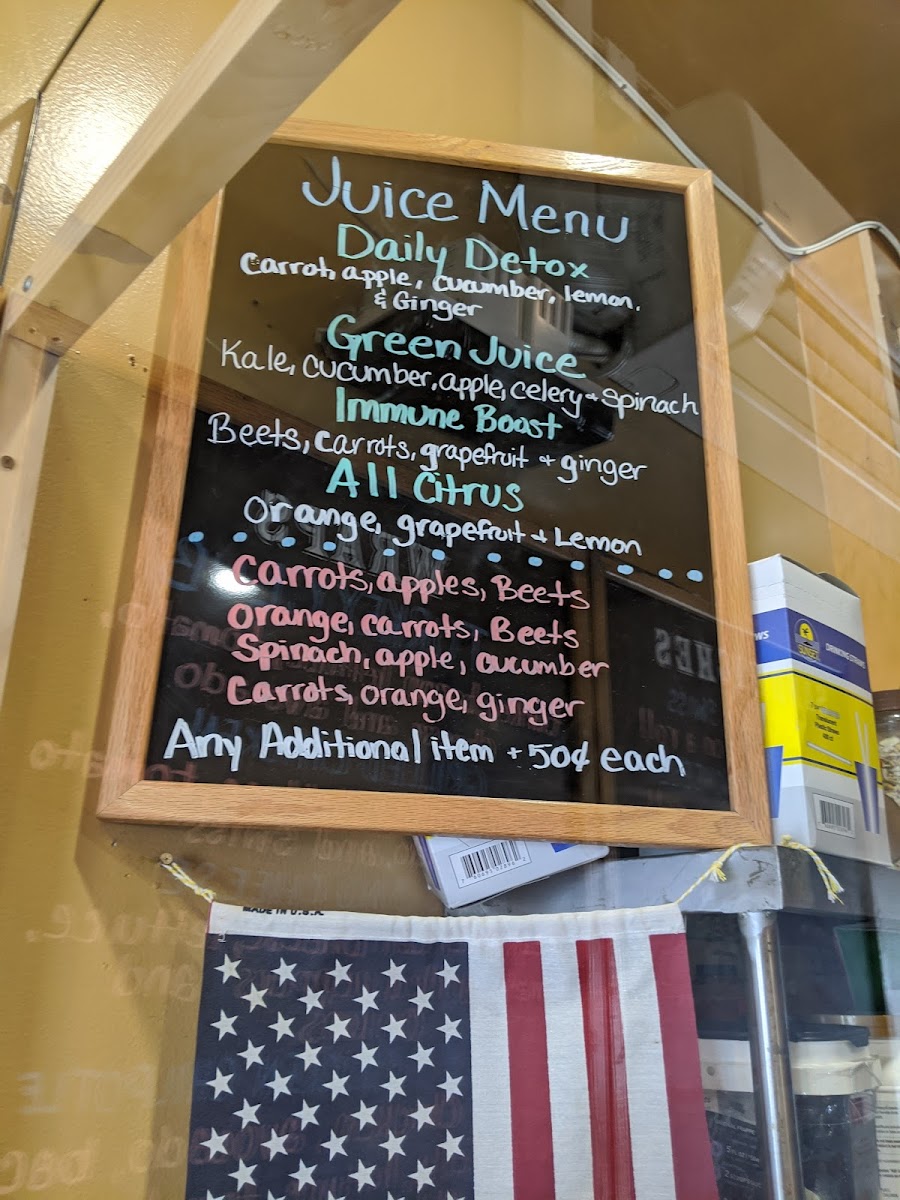 Juice Menu
Daily Detox
Carrot, apple, cucumber, lemon,
& Ginger
Green Juice
Kale, cucumber, apple, celery + Spinach
Immune Boost
Beets, carrots, grapefruit + ginger
All Citrus
Orange, grapefruit + Lemon
Carrots, apples, Beets
Orange, carrots, Beets
Spinach, apple, cucumber
Carrots, orange, ginger
Any Additional item + 50¢ each
SUNSET
DRINKING STRAWS
MADE IN U.S.A.